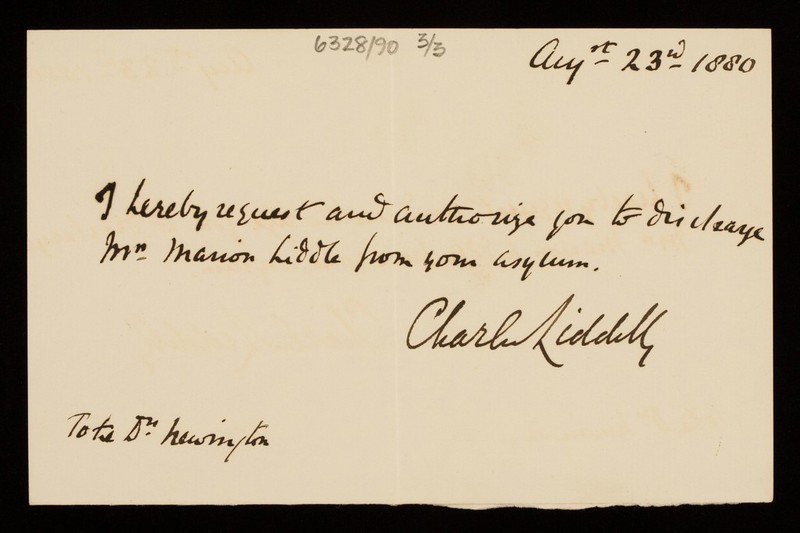 6328/90 3/3
Augst 23rd 1880
I hereby request and authorize you to discharge
Mrs Marion Liddle from your asylum.
Charles Liddell
To the Drs Newington